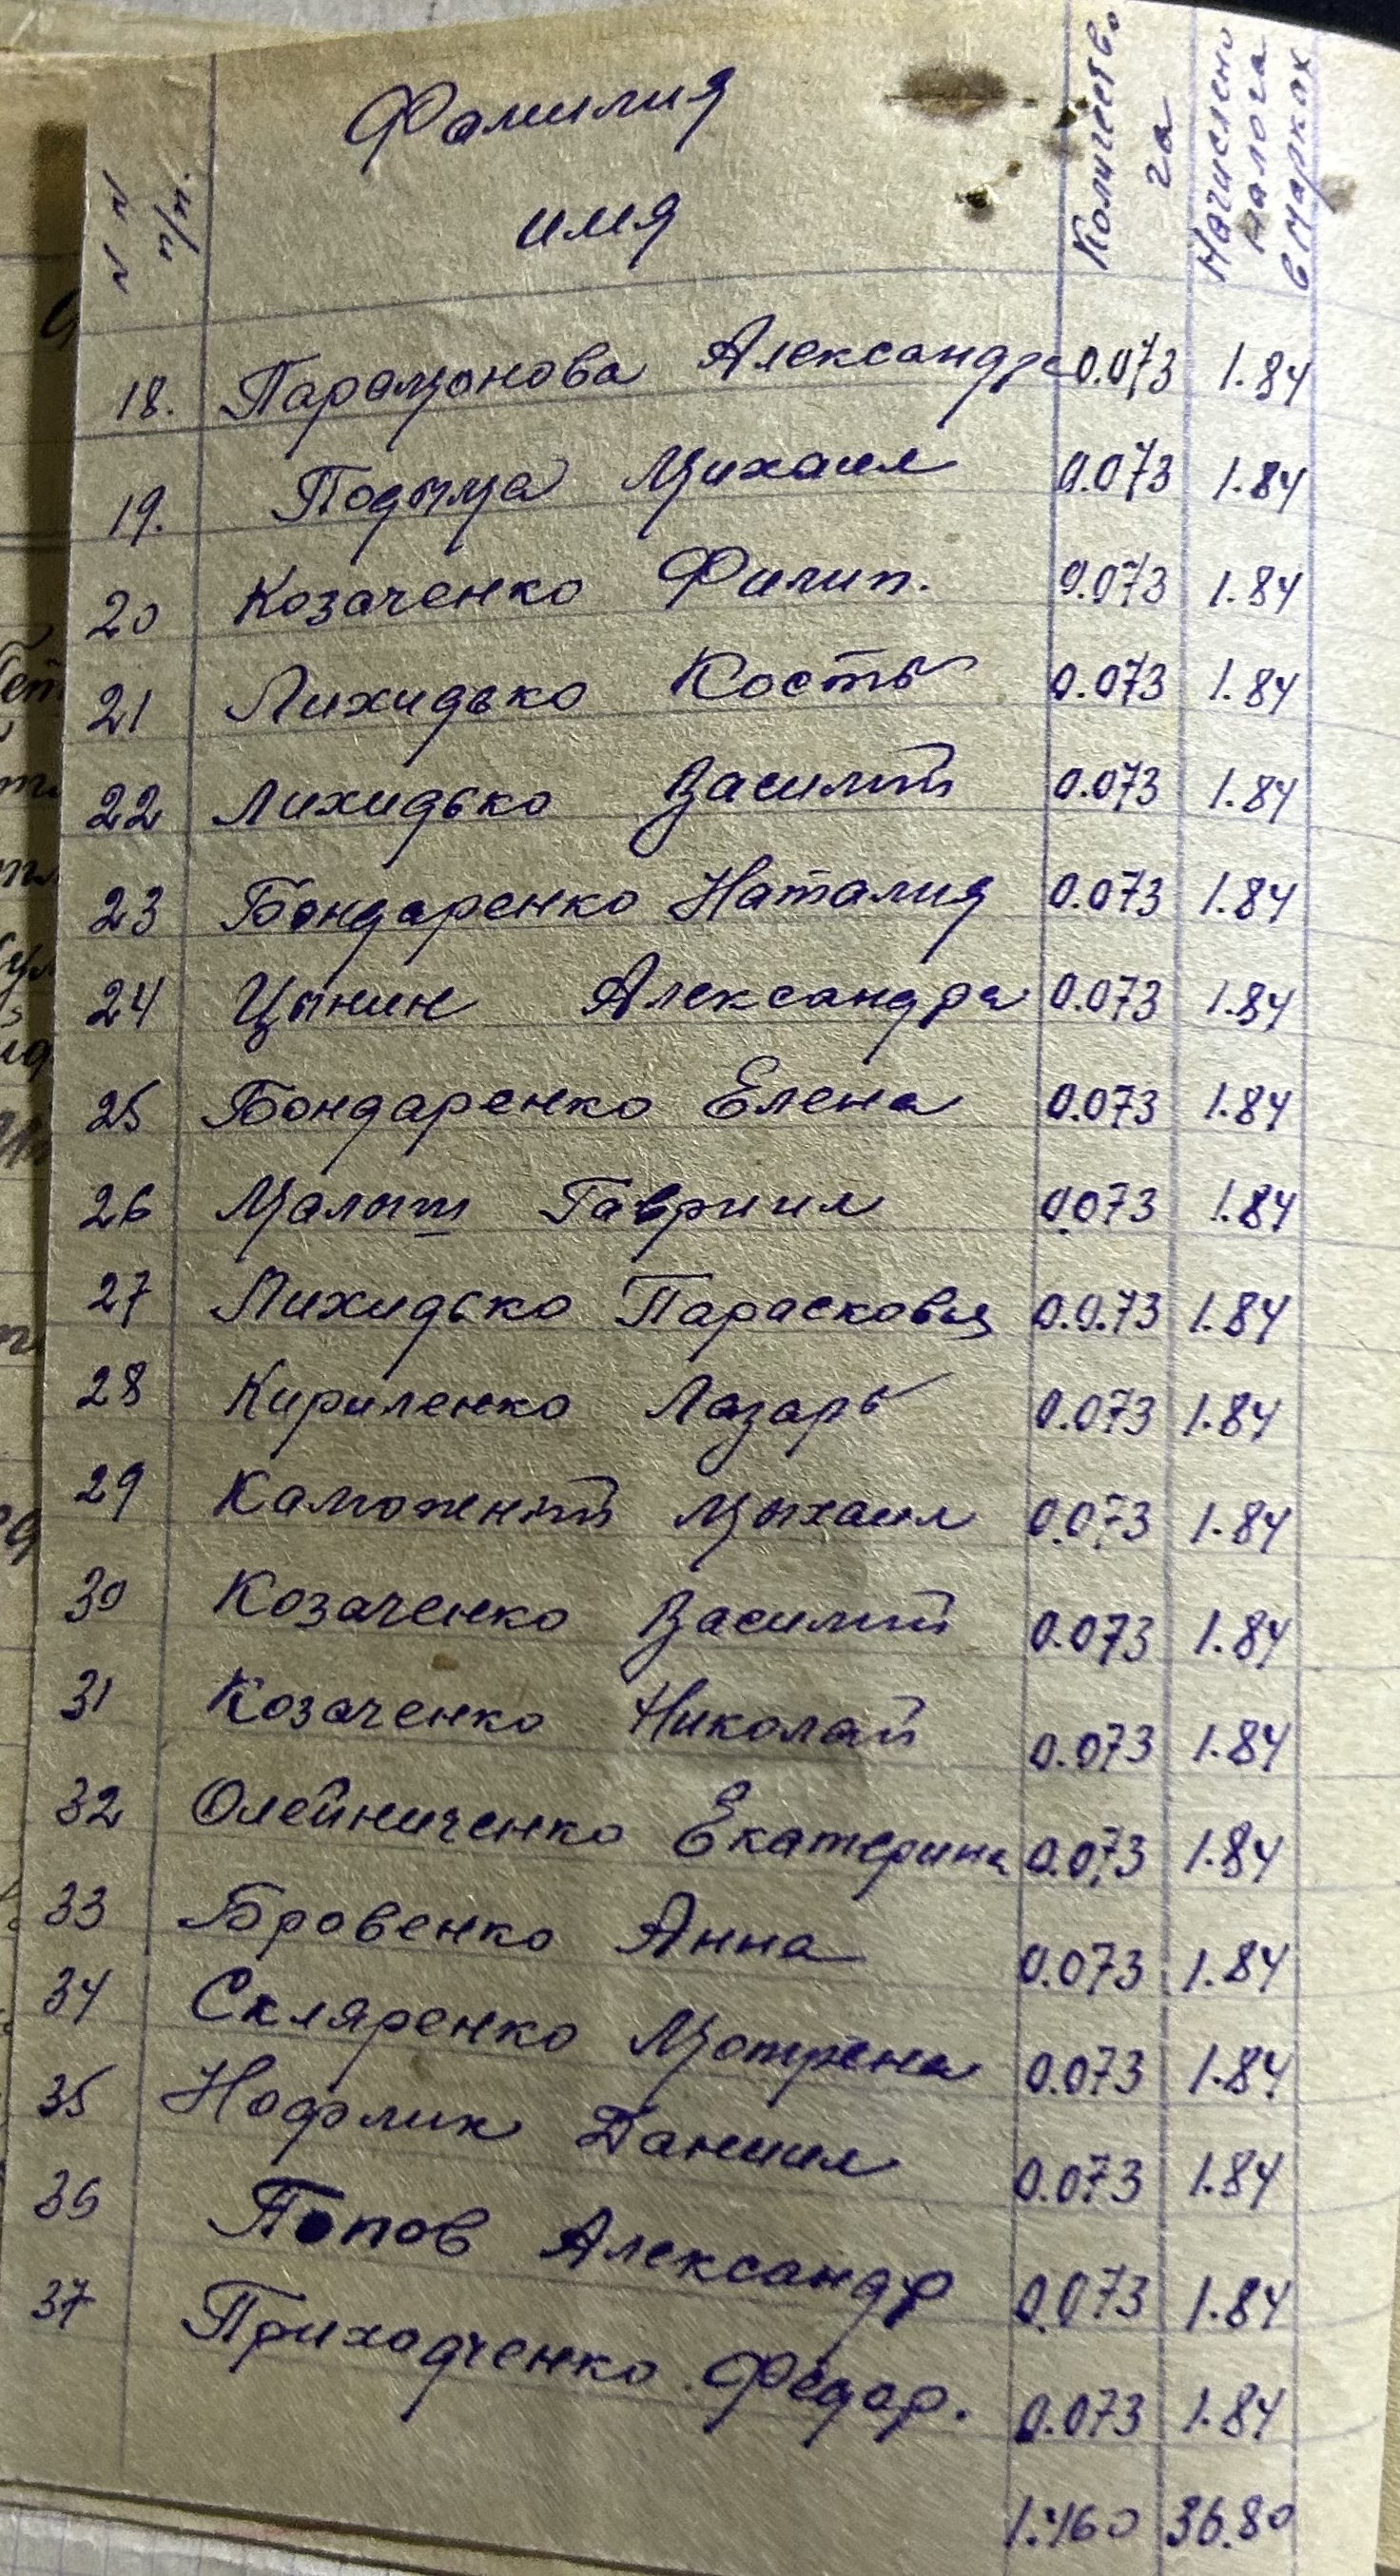 N N п/п. Фамилия имя Количество га Начислено налога в марках
18. Парамонова Александра 0.073 1.84
19. Подыма Михаил 0.073 1.84
20 Козаченко Филип. 0.073 1.84
21 Лихидько Кость 0.073 1.84
22 Лихидько Василий 0.073 1.84
23 Бондаренко Наталия 0.073 1.84
24 Цынин Александра 0.073 1.84
25 Бондаренко Елена 0.073 1.84
26 Малыш Гавриил 0.073 1.84
27 Лихидько Парасковья 0.0.73 1.84
28 Кириленко Лазарь 0.073 1.84
29 Михаил 0.073 1.84
30 Козаченко Василий 0.073 1.84
31 Козаченко Николай 0.073 1.84
32 Олейниченко Екатерина 0.073 1.84
33 Бровенко Анна 0.073 1.84
34 Скляренко Мотрена 0.073 1.84
35 Даниил 0.073 1.84
36 Попов Александр 0.073 1.84
37 Приходченко Федор. 0.073 1.84
1.460 36.80